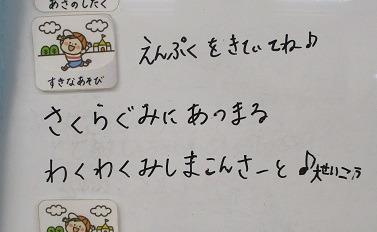 あさのしたく
えんぷくをきていてね♪
すきなあそび
さくらぐみにあつまる
わくわくみしまこんさーと♪大せいこう